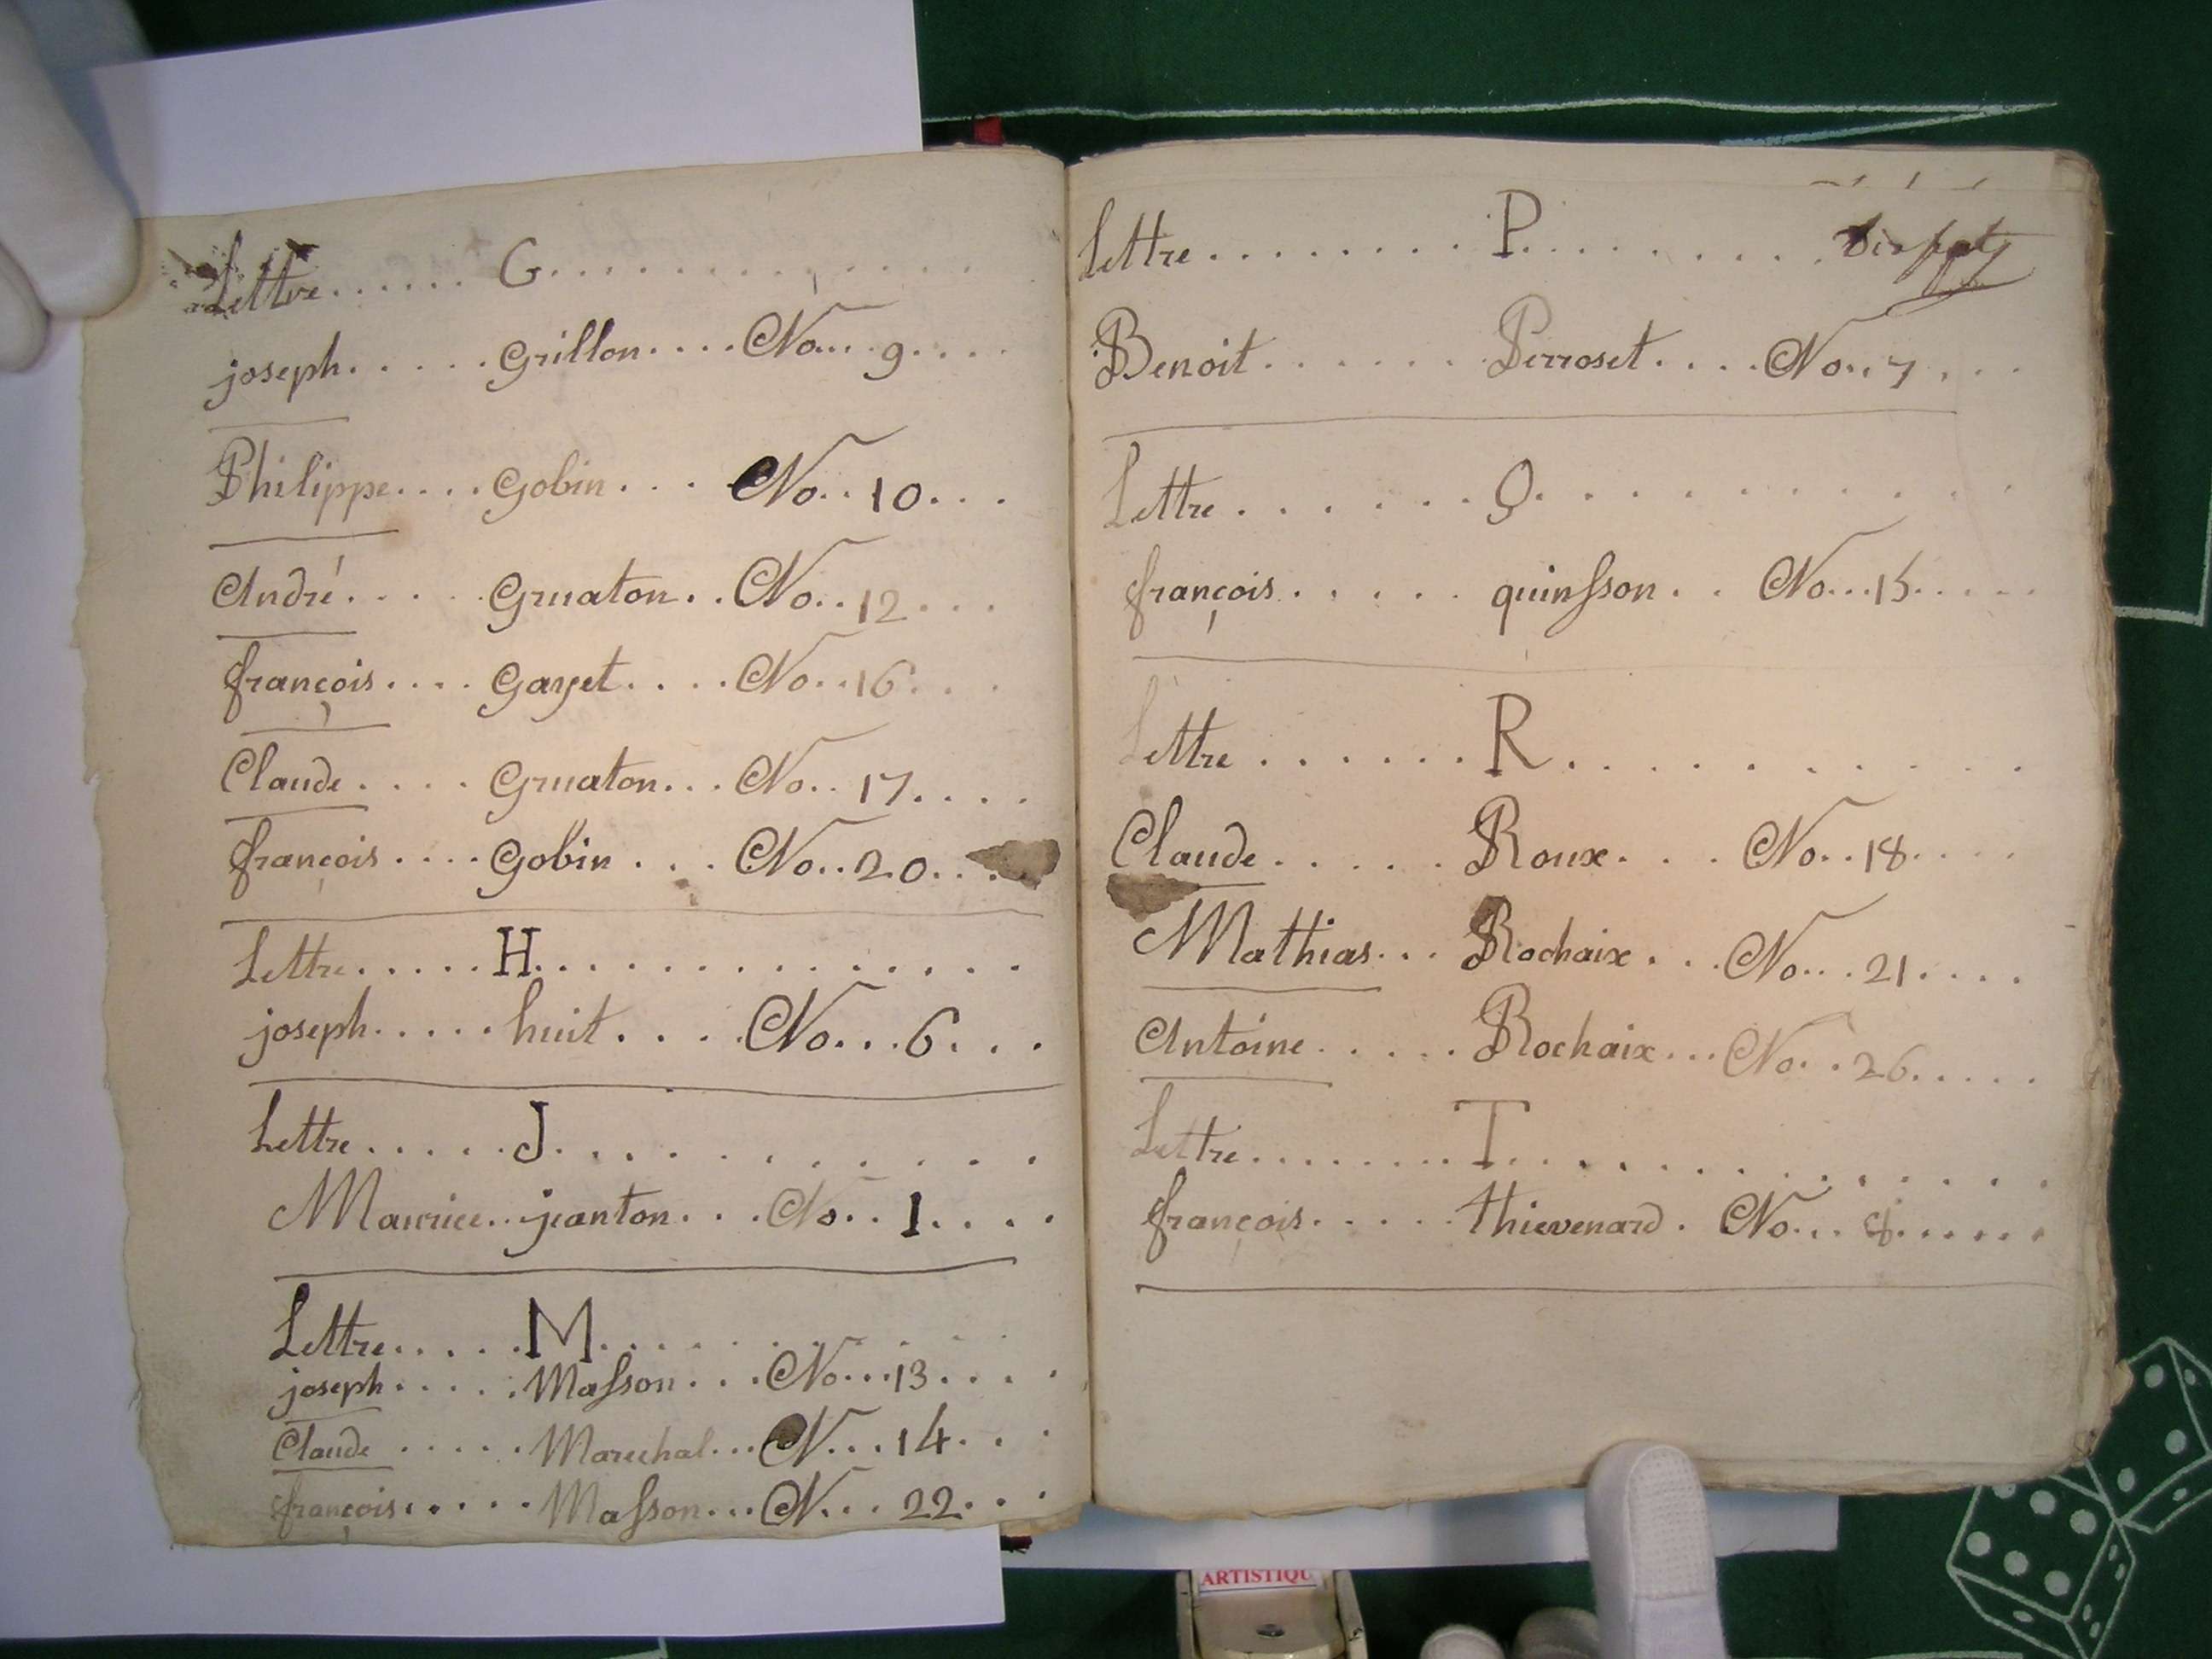 Lettre...... G..............
joseph..... Grillon.... No... 9....
Philippe.... Gobin... No.. 10...
André..... Gruaton.. No.. 12...
françois.... Gayet.... No.. 16....
Claude.... Gruaton... No.. 17....
françois.... Gobin... No.. 20...
Lettre..... H..............
joseph..... huit.... No... 6...
Lettre..... J...........
Maurice.. jeanton... No.. 1....
Lettre..... M...........
joseph..... Maſson... No... 13....
Claude..... Marechal... N... 14...
françois..... Maſson... N... 22...
Lettre........ P..........
Benoit...... Perroset.... No.. 7...
Lettre...... Q..........
françois..... quinſson.. No... 15.....
Lettre...... R..........
Claude..... Roux... No.. 18....
Mathias... Rochaix... No... 21....
Antoine..... Rochaix... No... 26.....
Lettre........ T..............
françois..... thievenard. No... 8......
ARTISTIQU